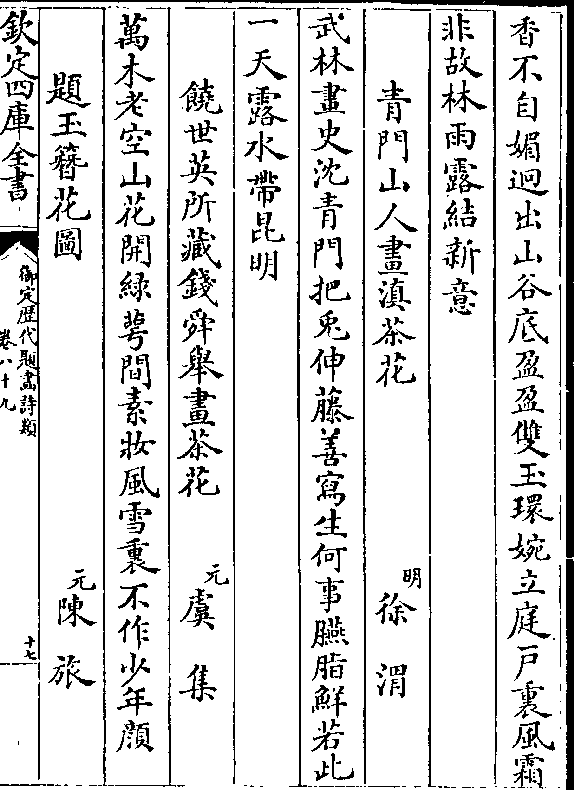 香不自媚迥出山谷底盈盈雙玉環婉立庭戸裏風霜
非故林雨露結新意
青門山人畫滇茶花　　明徐渭
武林畫史沈青門把兎伸藤善寫生何事臙脂鮮若此
一天露水帶昆明
饒世英所藏錢舜舉畫茶花　　元虞集
萬木老空山花開緑萼間素妝風雪裏不作少年顔
題玉簪花圖　　元陳旅
欽定四庫全書
御定歴代題畫詩類
卷八十九
十七